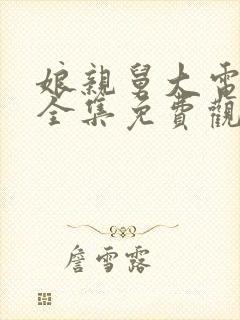 娘親舅大電
全集免費觀
詹雪露